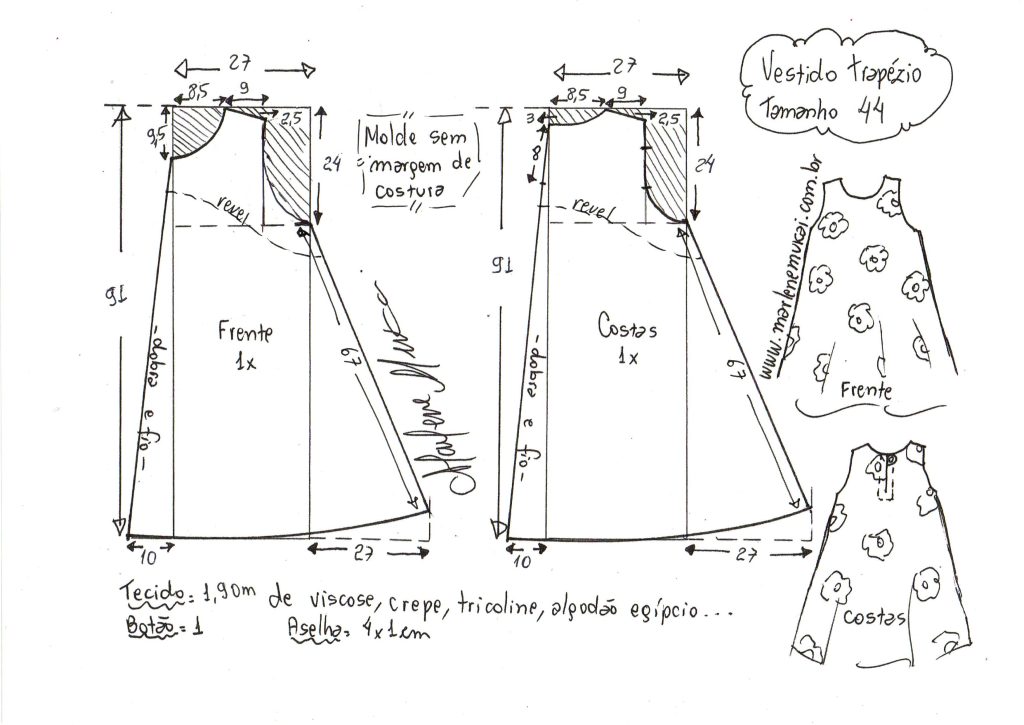 Vestido trapézio
Tamanho 44
27
8,5 9
2,5
9,5
24
91
revel
Frente
1x
-dobra e fio-
67
10
27
Molde sem
margem de
costura
Marlene Mukai
27
8,5 9
3
2,5
8
24
91
revel
Costas
1x
-dobra e fio-
67
10
27
www.marlenemukai.com.br
Frente
costas
Tecido: 1,90m de viscose, crepe, tricoline, algodão egípcio...
Botão = 1 Aselha = 4x1cm